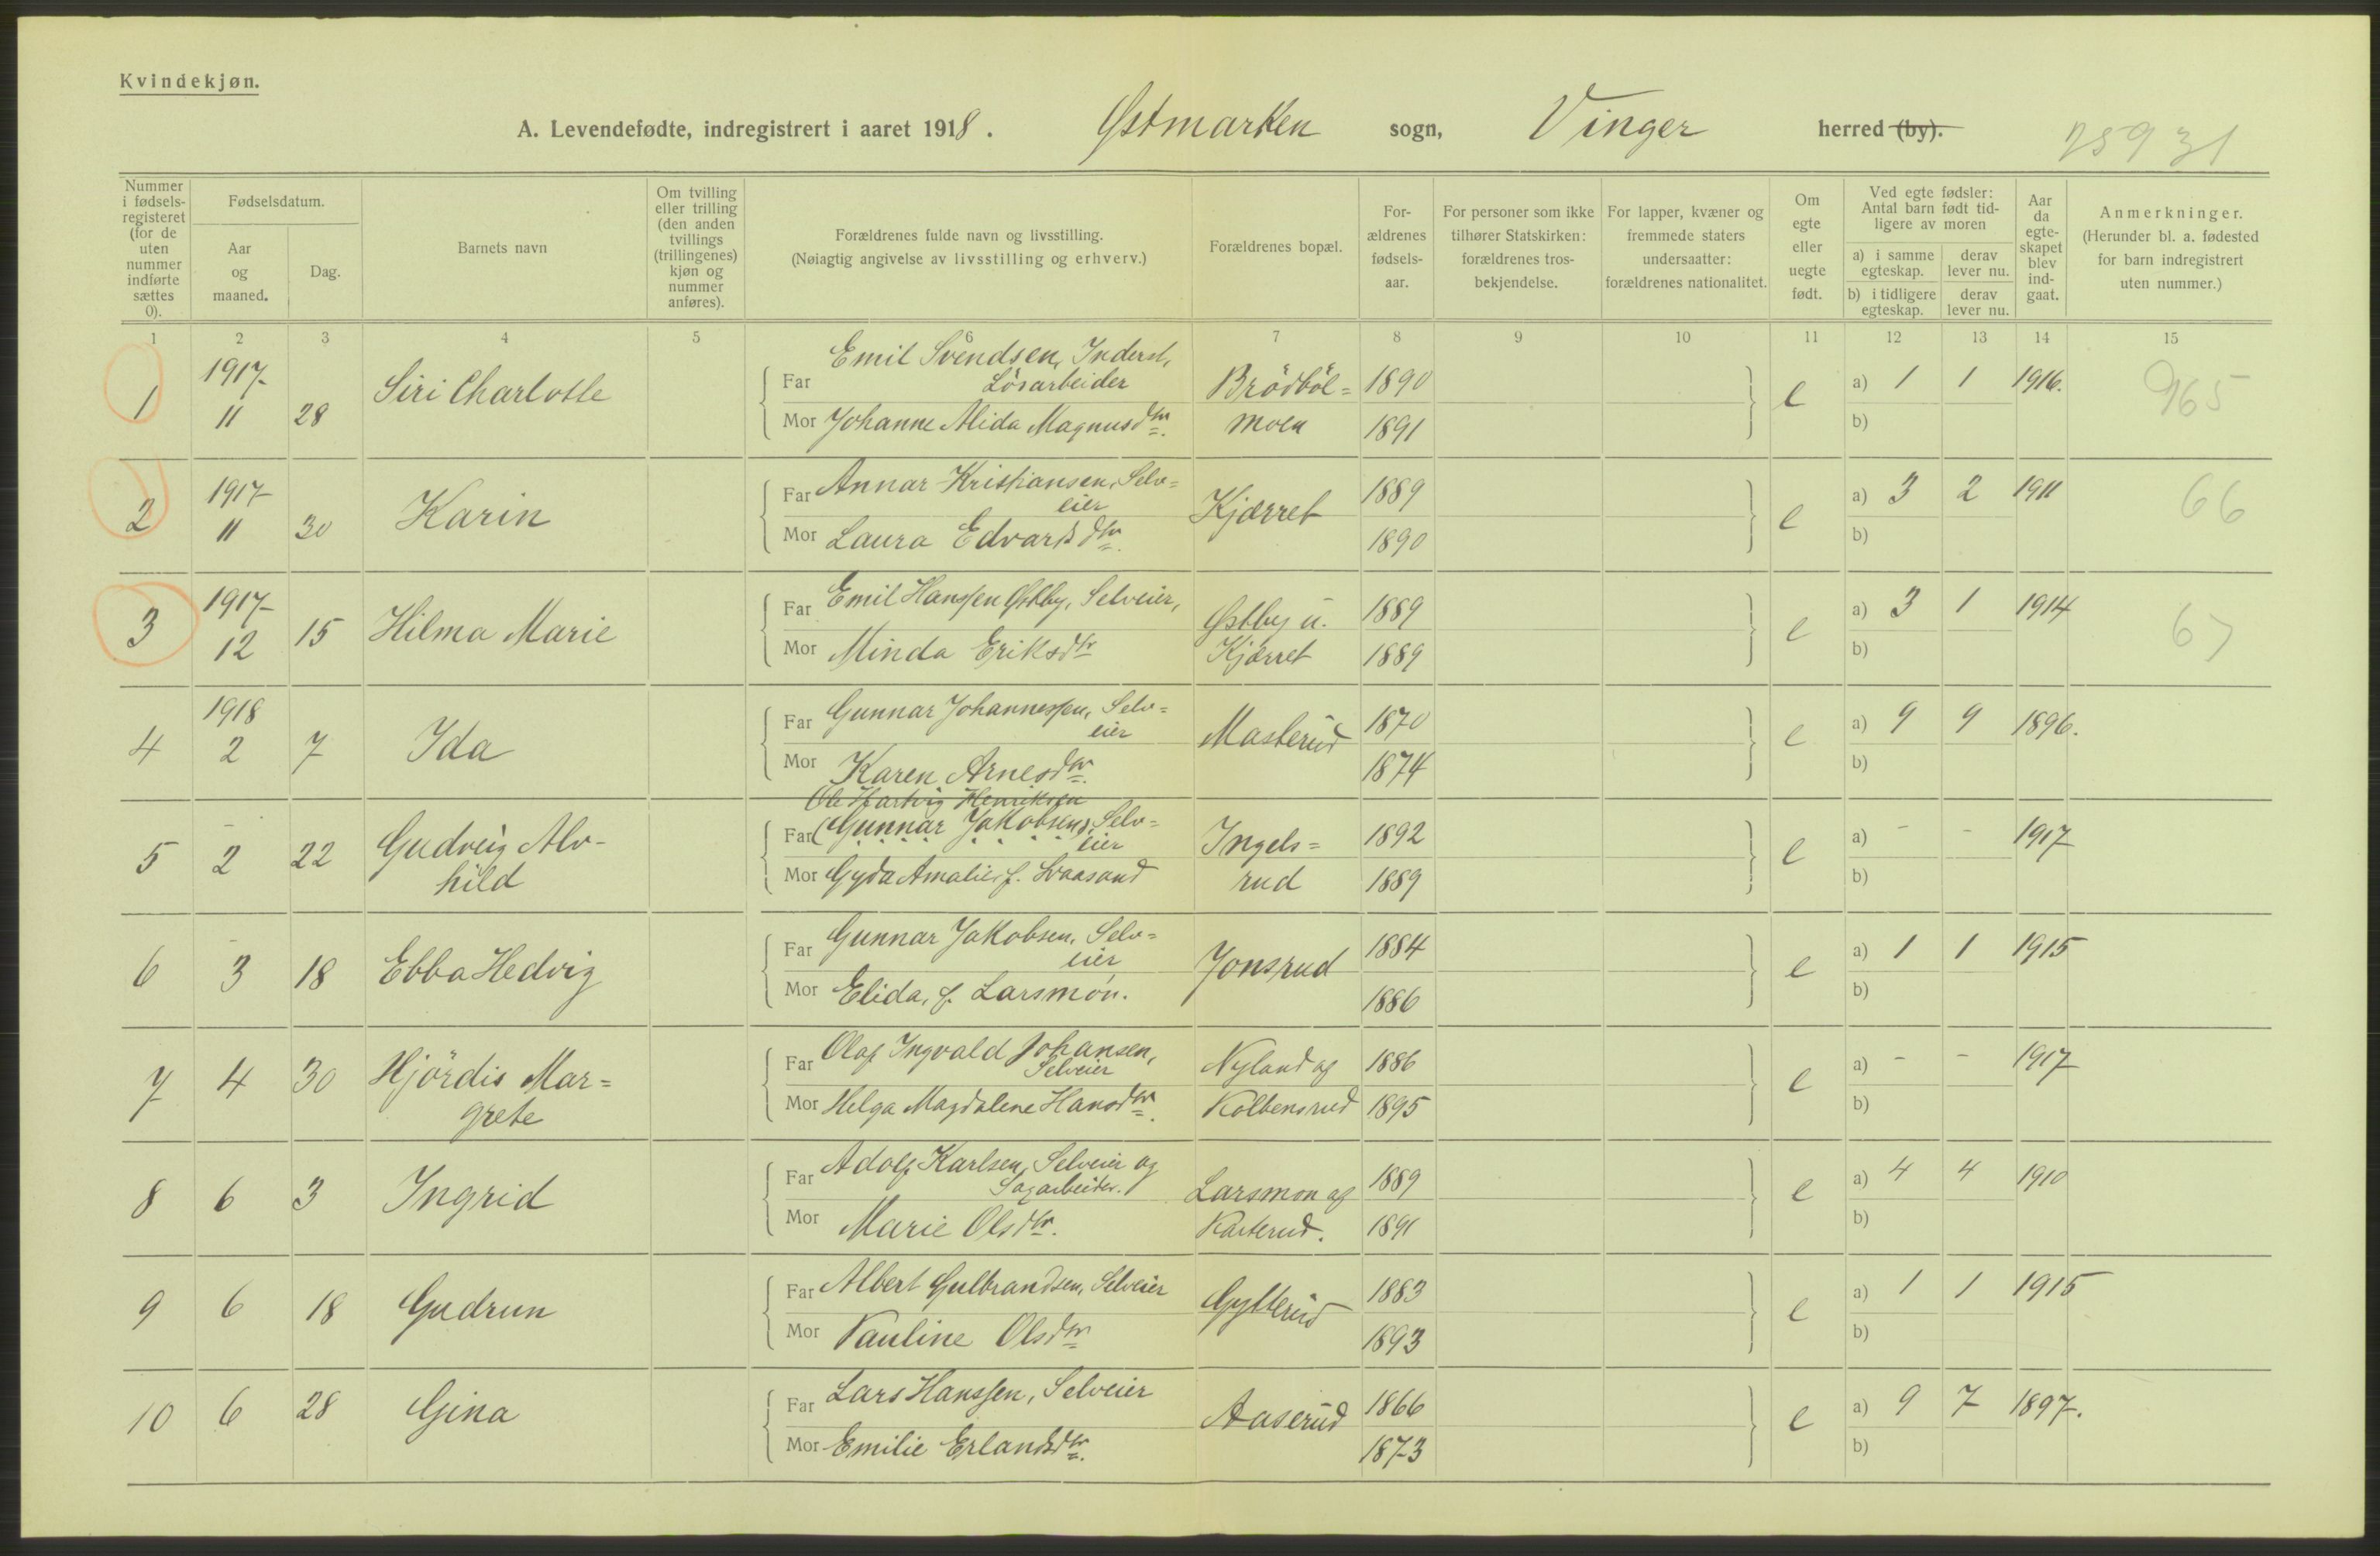 Kvindekjøn.
A. Levendefødte, indregistrert i aaret 1918. Østmarken sogn, Vinger herred (by).
Nummer i fødsels-registeret (for de uten nummer indførte sættes 0).
Fødselsdatum.
Aar og maaned.
Dag.
Barnets navn
Om tvilling eller trilling (den anden tvillings (trillingenes) kjøn og nummer anføres).
Forældrenes fulde navn og livsstilling.
(Nøiagtig angivelse av livsstilling og erhverv.)
Forældrenes bopæl.
For-ældrenes fødsels-aar.
For personer som ikke tilhører Statskirken: forældrenes tros-bekjendelse.
For lapper, kvæner og fremmede staters undersaatter: forældrenes nationalitet.
Om egte eller uegte født.
Ved egte fødsler: Antal barn født tid-ligere av moren
a) i samme egteskap. derav lever nu.
b) i tidligere egteskap. derav lever nu.
Aar da egte-skapet blev ind-gaat.
Anmerkninger.
(Herunder bl. a. fødested for barn indregistrert uten nummer.)
1 2 3 4 5 6 7 8 9 10 11 12 13 14 15
1 1917- 11 28 Siri Charlotte
Far Emil Svendsen, Inderst, Lösarbeider Brödböl= 1890 e a) 1 1 1916. 965
Mor Johanne Alida Magnusdtr. moen 1891 b)
2 1917- 11 30 Karin
Far Annar Kristiansen, Selv=eier Kjærret 1889 e a) 3 2 1911 66
Mor Laura Edvardsdtr. 1890 b)
3 1917- 12 15 Hilma Marie
Far Emil Hanssen Østby, Selveier, Østby u. 1889 e a) 3 1 1914 67
Mor Minda Eriksdtr Kjærret 1889 b)
4 1918 2 7 Ida
Far Gunnar Johannessen, Selv=eier Masterud 1870 e a) 9 9 1896.
Mor Karen Arnesdtr. 1874 b)
Ole Hartvig Henriksen
5 2 22 Gudveig Alv-hild
Far (Gunnar Jakobsen), Selv=eier Ingels= 1892 e a) - - 1917
Mor Gyda Amalie, f. Svaasand rud 1889 b)
6 3 18 Ebba Hedvig
Far Gunnar Jakobsen, Selv=eier Jonsrud 1884 e a) 1 1 1915
Mor Elida, f. Larsmon. 1886 b)
7 4 30 Hjördis Mar=grete
Far Olaf Ingvald Johansen, Selveier Nyland og 1886 e a) - - 1917
Mor Helga Magdalene Hansdtr. Kolbensrud 1895 b)
8 6 3 Ingrid
Far Adolf Karlsen, Selveier og Sagarbeider. Larsmon og 1889 e a) 4 4 1910
Mor Marie Olsdtr. Karterud. 1891 b)
9 6 18 Gudrun
Far Albert Gulbrandsen, Selveier Gytterud 1883 e a) 1 1 1915
Mor Pauline Olsdtr 1893 b)
10 6 28 Gina
Far Lars Hanssen, Selveier Aaserud 1866 e a) 9 7 1897.
Mor Emilie Erlandsdtr. 1873 b)